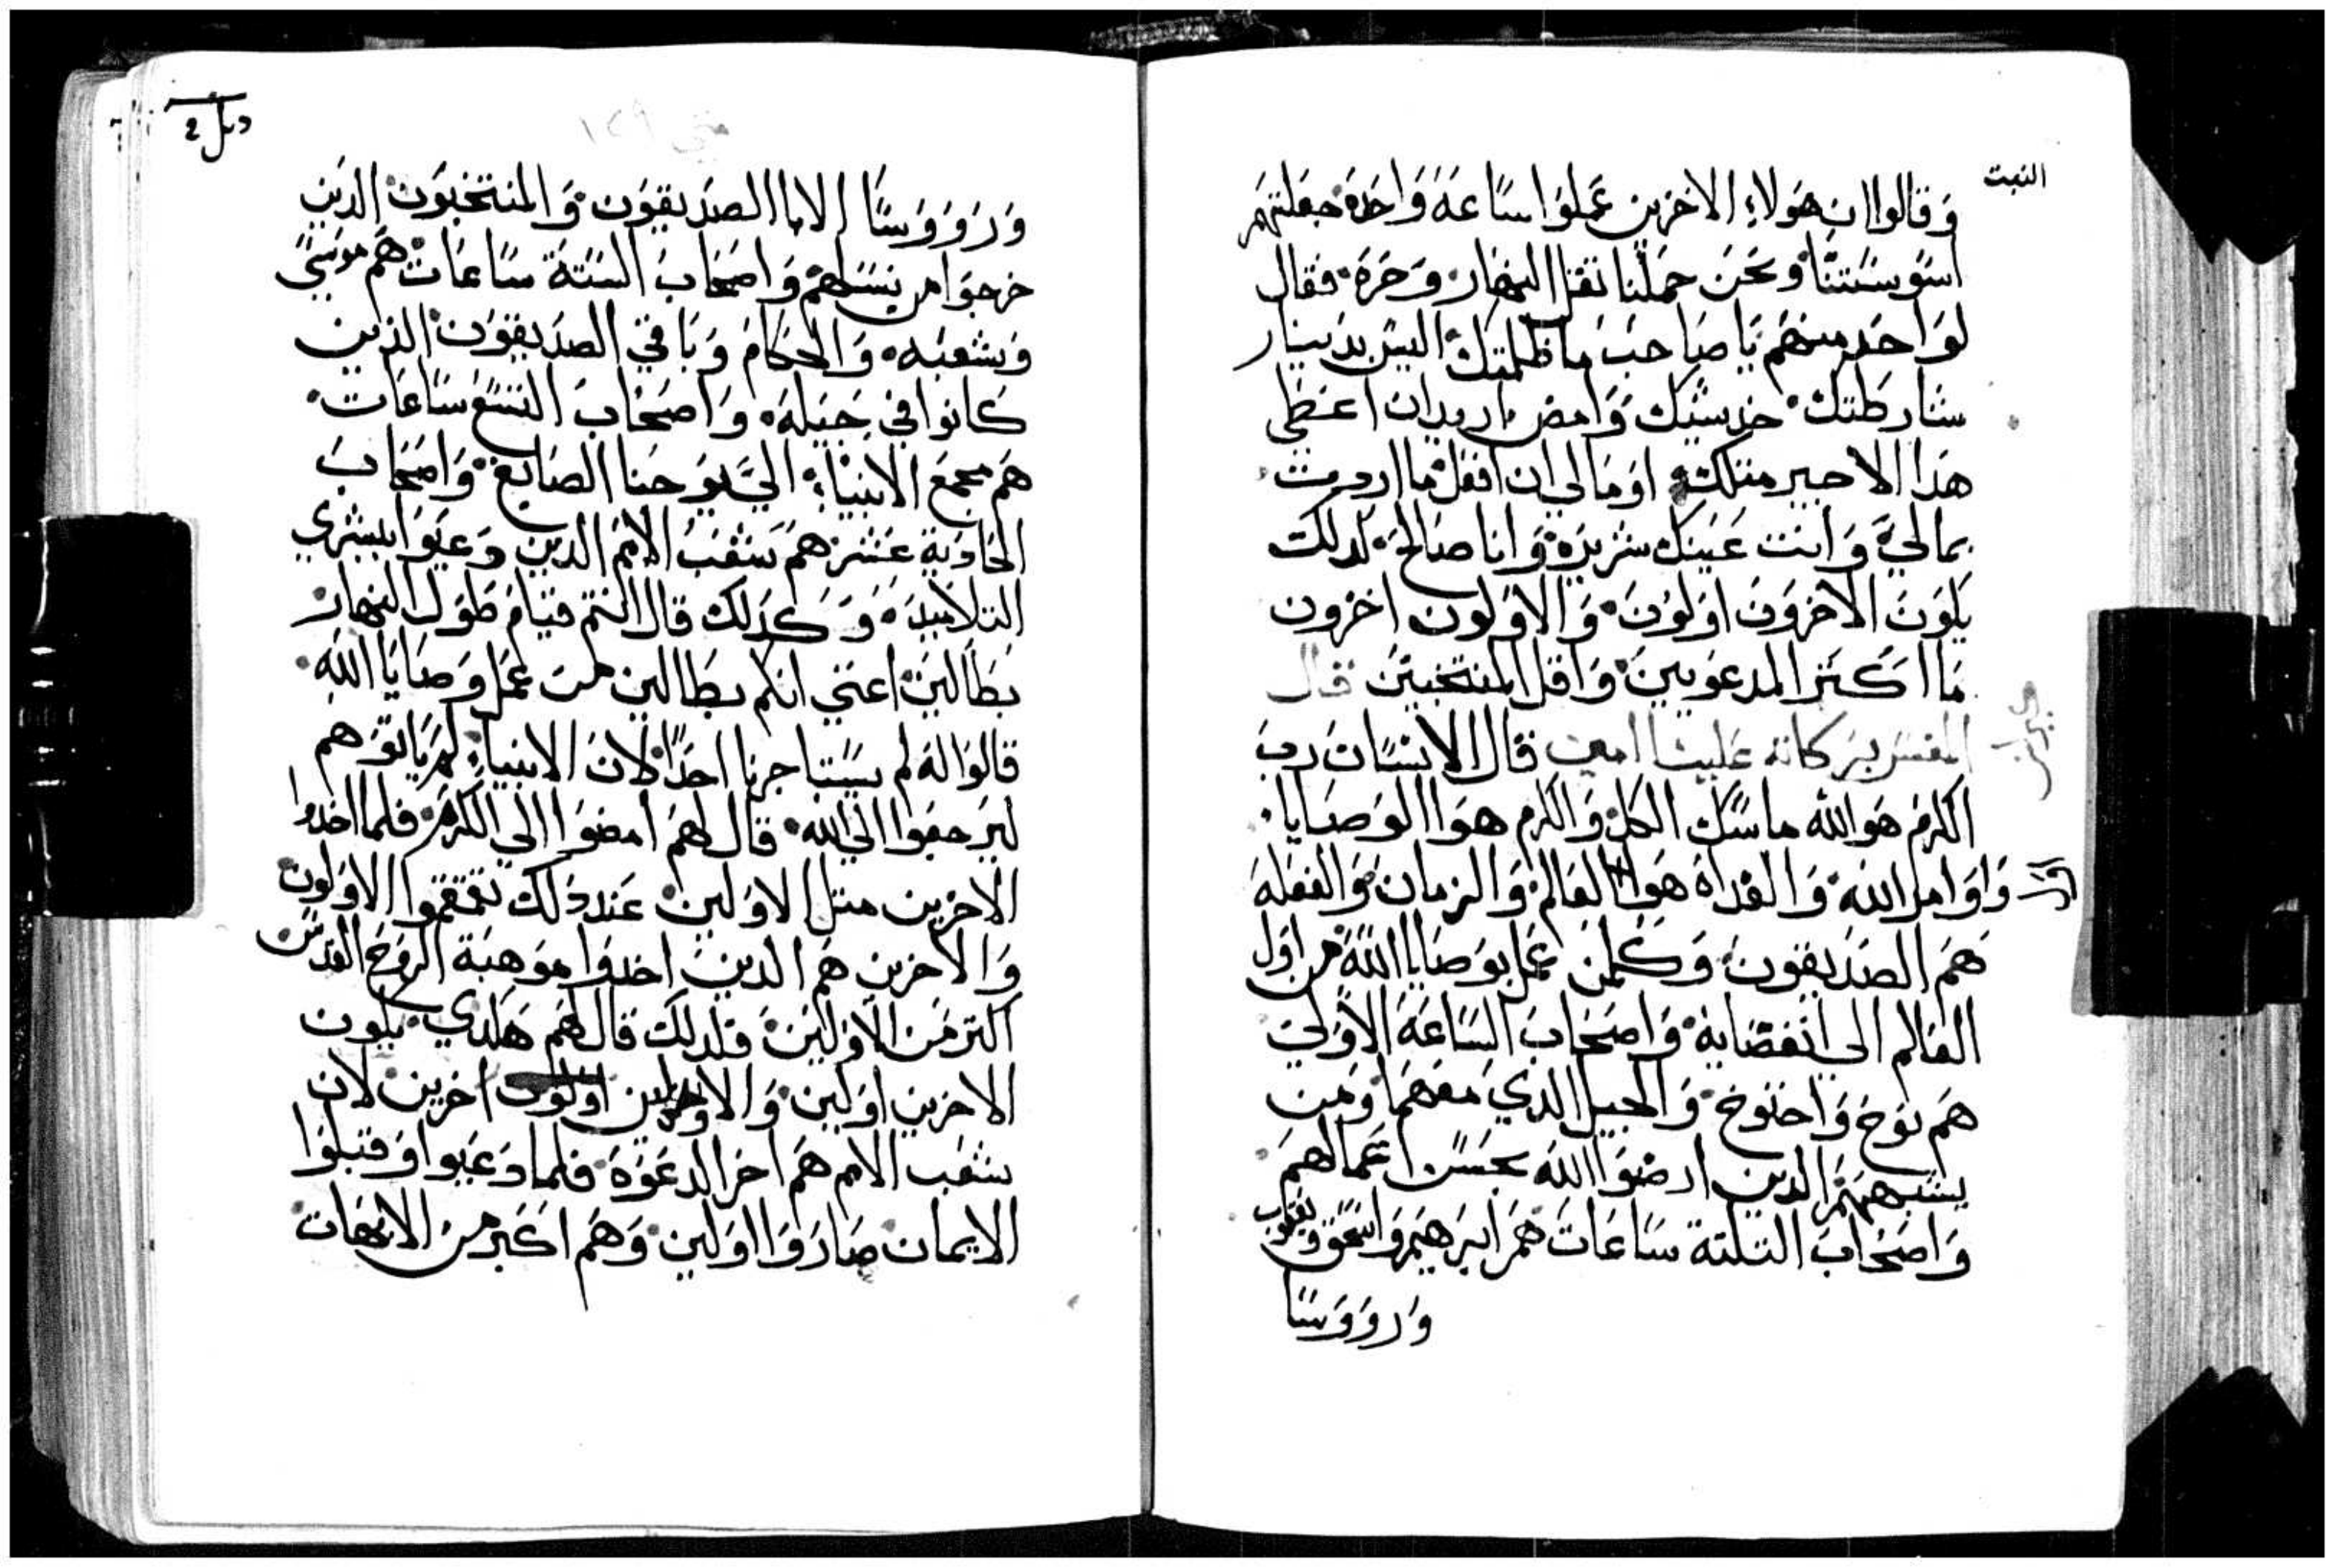 النبت
وَقالوا ان هَولاءِ الاخرين عَملوَا سَاعَة وَاحَدة جَعَلتهَم
اسَوسَتنا وَنحَن حمَلنا ثقل النهَار وَحرَة فقال
لوَاحَد منهَم يَا صَاحبَ ما ظلمتك اليسَ بدَينار
شارَطتك خد شيَك وَامض اريدان اعَطي
هَدا الاخير متلك اوَمَا لي ان افعَل ما اردت
بمالي وَانت عَينك شريرَة وَانا صَالح لدلك
يكوَن الاخروَن اوَلوَن وَالاوَلون اخرون
مَا اكَتر المدعوَيين وَاقل المنتخبيَن قال
المفسَر بركاته عَلينا امين قال الانسَان رب
الكرَم هوَ الله ماسَك الكل وَالكرم هوَا الوَصَايا
وَاوَامر الله وَالغدَاة هوَا العَالم وَالزمان وَالفعَلة
هَم الصدَيقون وَكلمن عَمل بوَصَايا الله من اوَل
العَالم الي انقضَايه وَاصحَاب السَاعَة الاوَلي
هَم نوَح وَاخنوَخ وَالجيل الدي معَهمَا وَمن
يشبههَم الدين ارضَوا الله بحسَن اعَمالهَم
وَاصحَاب التلتة سَاعَات هَم ابرَهيَم وَاسَحَق وَيعَقوب
وَروَوَسَا
وَروَوَسَا الابا الصدَيقوَن وَالمنتخبوَن الدَين
خرجوَا من نسَلهَم وَاصحَاب السَتة سَاعَات هَم موسَي
وَشعبَه وَالحكام وَبَاقي الصدَيقوَن الذين
كانوا في جَيله وَاصحَاب التسَع سَاعَات
هَم مجمعَ الانبيَاء الي يوَحنا الصَابغ وَاصحَابَ
الحَادَية عَشر هَم شعَب الامم الدين دَعيَوا ببشري
التلاميدَ وَكدَلك قال انتم قيَام طوَل النهار
بطَالين اعَني انكم بطَالين من عَمل وَصَايَا الله
قالوَا له لم يسَتاجرنا احَدَا لان الانبيَاء لم يَاتوَهم
ليرَجعوا الي الله قال لهَم امضوَا الي الكرَم فلما اخدوا
الاخرين متل الاوَلين عَند دَلك تقمقموا الاوَلون
وَالاخرين هَم الدين اخدوَا موَهبَة الروَح القدسَ
اكتر من الاوَلين فلدلك قال لهَم هَكدي يكون
الاخرين اوَلين وَالاوَلين اخرين لان
شعَب الامم هَم اخر الدعَوَة فلما دَعيَوا وَقبلوَا
الايمان صَاروَا اوَلين وَهَم اكَبر من الابهَات